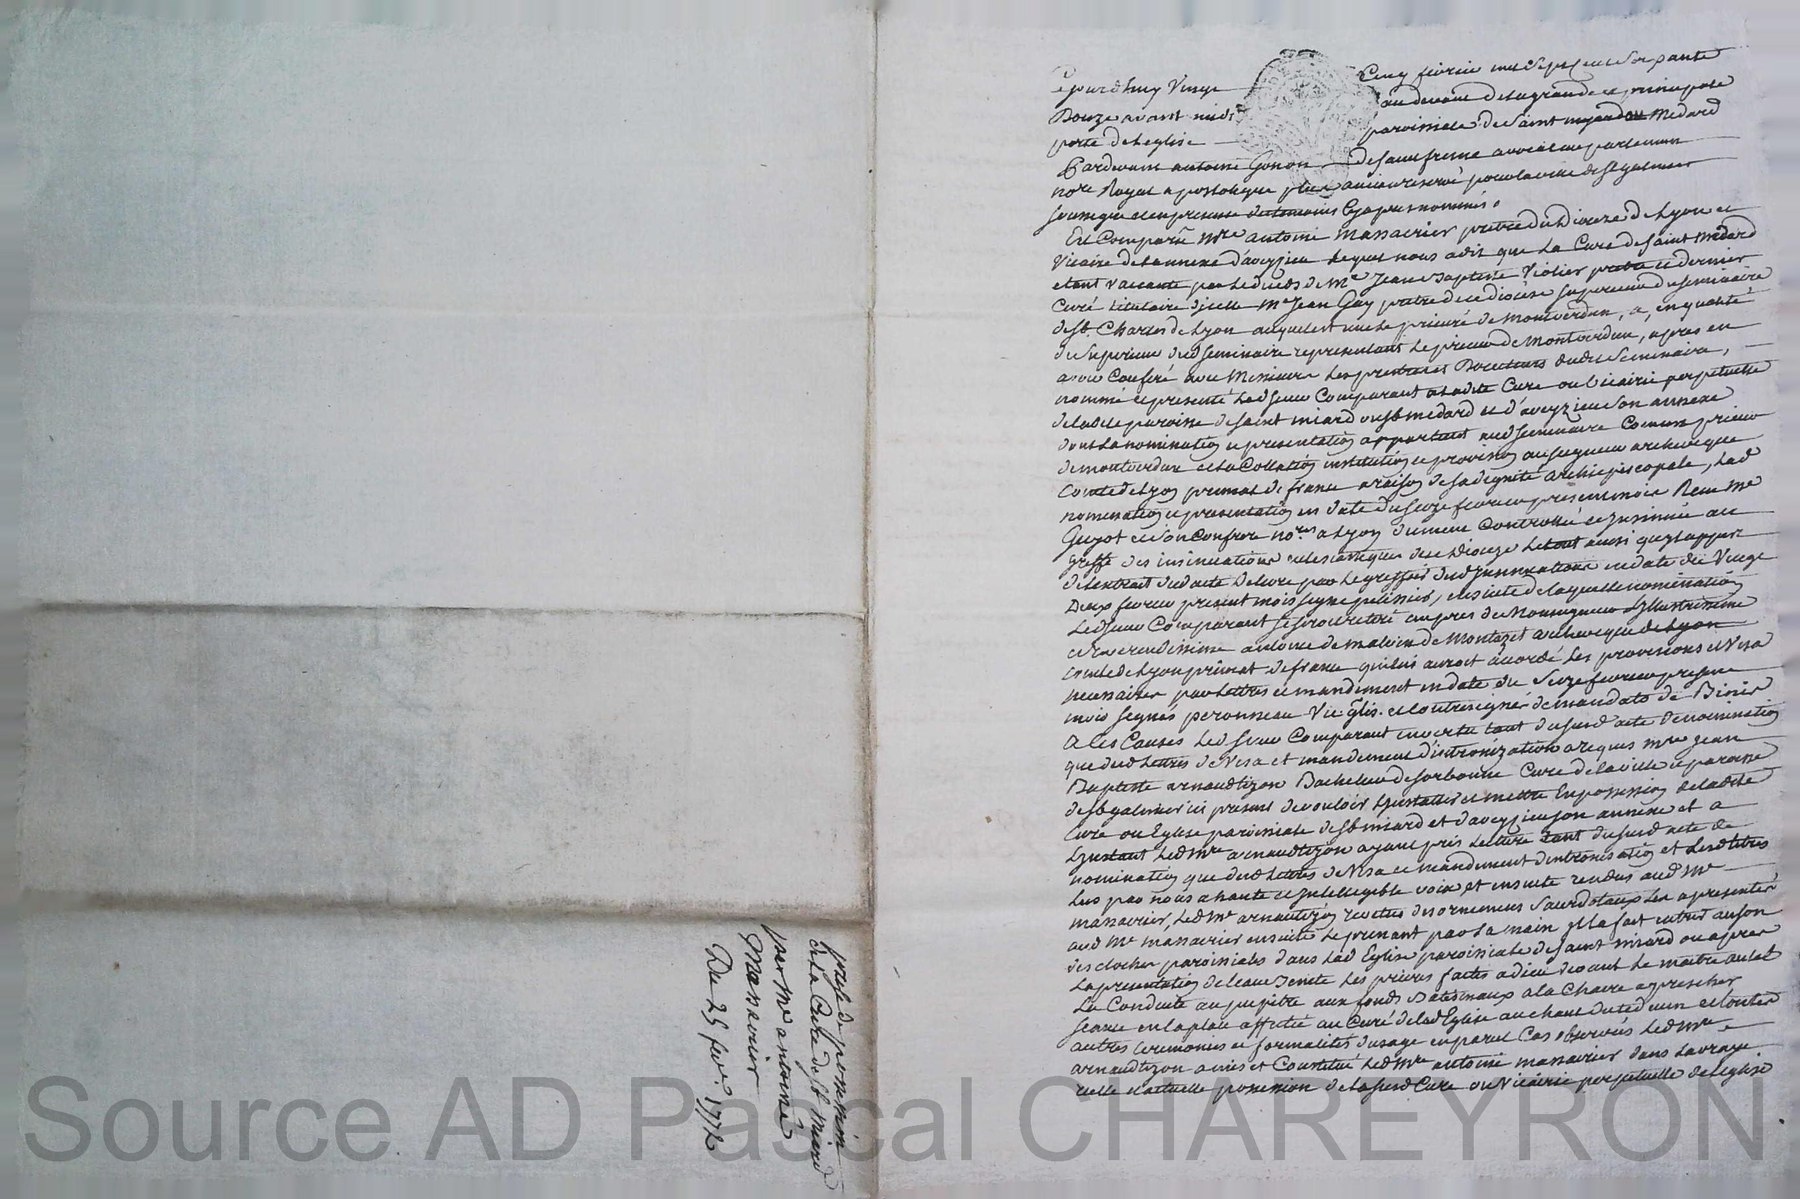 prise de possession
de la Cure de st miard
par mre antoine
Massacrier
Du 25 fev. 1772
Cejourd'huy Vingt Cinq fevrier mil sept cent soixante
Douze avant midi au devant de la grande et principale
porte de l'eglise parroissiale de Saint Medard
Pardevant antoine Gonon de Saint fresne avocat au parlement
nore Royal apostolique
soussigné et en presence des temoins cy apres nommés.
Est Comparû mre antoine Massacrier pretre du Dioceze de Lyon et
Vicaire de l'annexe d'aveyzieu lequel nous a dit que la Cure de Saint Medard
etant vacante par le deces de Me Jean Baptiste Violier pretre et dernier
Curé titulaire d'icelle Me Jean Guy pretre de ce diocèse superieur du seminaire
de St. Charles de Lyon auquel est uni le prieuré de Montverdun, a, en qualité
de Superieur dud seminaire representant le prieur de Montverdun, apres en
avoir Conferé avec Messieurs les pretres et Directeurs dudit Seminaire,
nommé et presenté led sieur Comparant a ladite Cure ou Vicairie perpetuelle
de ladite paroisse de saint miard ou st medard et d'aveyzieu son annexe
dont la nomination et presentation appartient aud seminaire Comme prieur
de montverdun et la Collation institution et provision au seigneur archeveque
Comte de Lyon primat de france a raison de sa dignité archiepiscopale, lad
nomination et presentation en date du seize fevrier present mois Reçu Me
Guyot et son Confrere nores a Lyon dument Controllé et Insinué au
greffe des insinuations eclesiastiques de ce Dioceze le tout ainsi qu'il appert
de l'extrait dud acte delivré par le greffier des d Insinuations en date du Vingt
Deux fevrier present mois signé pelissier, ensuite de laquelle nomination
led sieur Comparant se seroit retiré aupres de Monseigneur Illustrissime
et Reverendissime antoine de malvin de Montazet archeveque de Lyon
Comte de Lyon primat de france qui lui auroit accordé les provisions et Visa
necessaires par lettres et mandement en date du Seize fevrier present
mois signés peronneau Vic glis. et contresignés de mandato de Biris
A Ces Causes led sieur Comparant en vertu tant du susd acte de nomination
que desd lettres de Visa et mandement d'intronization a requis mre jean
Baptiste arnaudtizon Bachelier de sorbonne Curé de la ville et paroisse
de St galmier ici present de vouloir l'Installer et mettre En possession de ladite
Cure ou Eglise paroissiale de St miard et d'aveyzieu son annexe et a
L'Instant led mre arnaudtizon ayant pris lecture tant du susd acte de
nomination que desd lettres de Visa et mandement d'intronisation et lesd titres
lus par nous a haute et Intelligible voix et ensuite rendus aud Mr
massacrier, led mr arnaudtizon revetu des ornemens Sacerdotaux les a presentés
aud Mr massacrier ensuite le prenant par la main il l'a fait entrer au son
des cloches paroissiales dans lad Eglise paroissiale de saint miard ou apres
la presentation de l'eau Benite les prieres faites a dieu devant le maitre autel
La Conduite au pupitre aux fonds Batismaux a la Chaire a prescher
Seance en la place affectée au Curé de lad Eglise au chant du te deum et toutes
autres Ceremonies et formalités d'usage en pareil Cas observés led Mre
arnaudtizon a mis et Constitué led mre antoine massacrier dans la vraye
reelle et actuelle possession de la susd Cure ou Vicairie perpetuelle de l'eglise
Source AD Pascal CHAREYRON